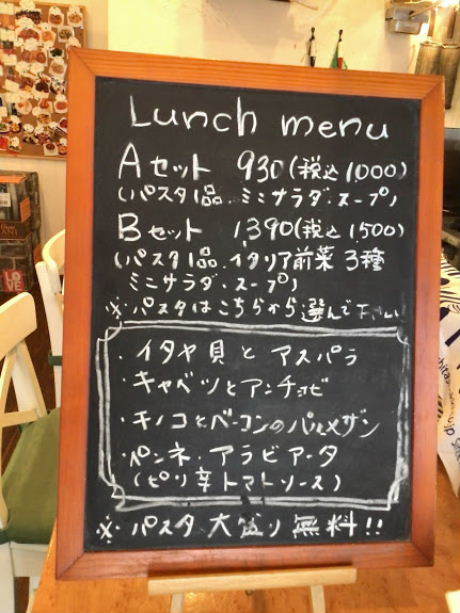 Lunch menu
Aセット 930(税込1000)
(パスタ1品.ミニサラダ.スープ)
Bセット 1,390(税込1,500)
(パスタ1品.イタリア前菜3種
ミニサラダ.スープ)
※.パスタはこちらから選んで下さい
・イタヤ貝とアスパラ
・キャベツとアンチョビ
・キノコとベーコンのパルメザン
・ペンネ・アラビアータ
(ピリ辛トマトソース)
※.パスタ大盛り無料!!
LOVE